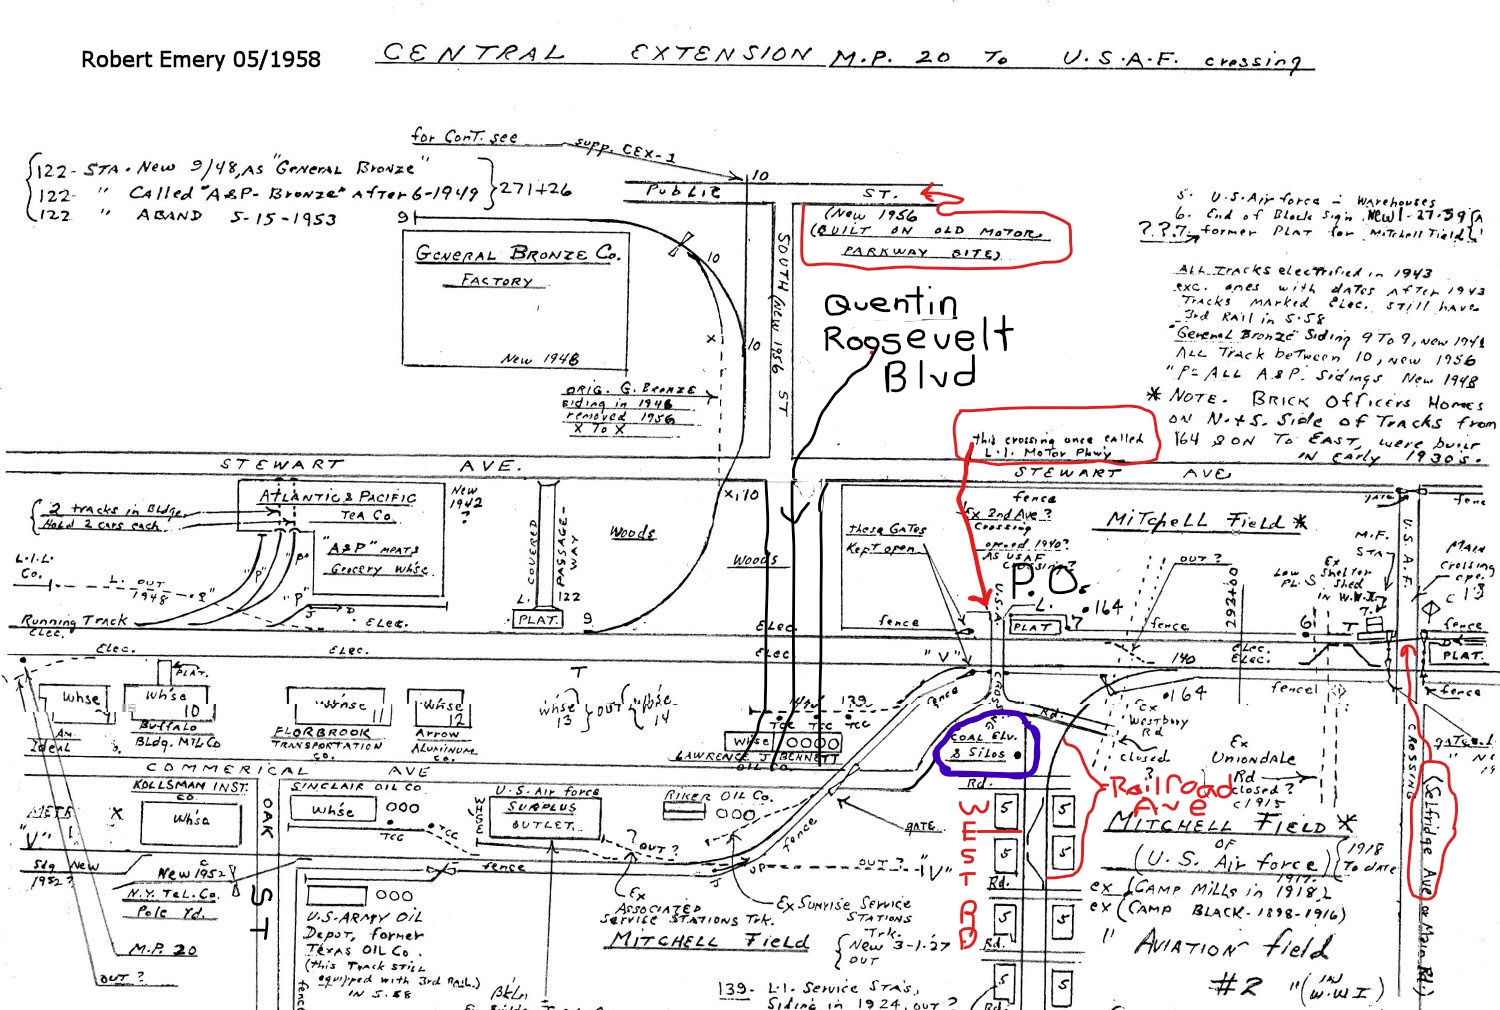 Robert Emery 05/1958
CENTRAL EXTENSION M.P. 20 To U.S.A.F. crossing
for Cont. see supp. CEX-1
122- STA. New 9/48, AS "General Bronze"
122- " Called "A&P- Bronze" After 6-1949
122 " ABAND 5-15-1953
271+26
10
Public ST.
(New 1956
(BUILT ON OLD MOTOR
PARKWAY SITE)
5. U.S. Air force - Warehouses
6. End of Block Sign. New 1-27-39
???7. former PLAT for Mitchell Field
9
GENERAL BRONZE Co.
FACTORY
New 1948
10
X
10
SOUTH (New 1956 ST
Quentin
Roosevelt
Blvd
ALL Tracks electrified in 1943
exc. ones with dates After 1943
Tracks marked Elec. still have
3rd Rail in 5-58
"General Bronze" Siding 9 To 9, new 1948
ALL Track beTween 10, new 1956
"P" = ALL A&P. Sidings New 1948
* NOTE. BRICK OfficeRs Homes
on N.+S. Side of Tracks from
164 & ON To EAST, were built
in Early 1930's.
ORIG. G. BRONZE
siding in 1948
removed 1956
X To X
this crossing once called
L.I. Motor Pkwy
STEWART AVE.
STEWART AVE
ATLANTIC & PACIFIC
TEA Co.
New
1942
?
2 tracks in Bldg.
Hold 2 cars each
"A&P" MEATS
Grocery Whse.
COVERED PASSAGE-WAY
122
L.
PLAT.
Woods
Woods
X,10
9
fence
Ex 2nd Ave?
Crossing
opened 1940?
AS USAF
Crossing?
these GATes
Kept open
MiTchell Field *
GATE
fence
U.S.A.F.
CROSSING
M.F.
STA
Ex
Shelter
Shed
in W.W.I
Low
PL. S
MAIN
Crossing
L.I.L.
Co.
L. OUT
1948
"P"
"P"
"P"
Running Track
Elec.
Elec.
Elec.
Elec.
Elec.
Elec.
P.O.
U.S.A.
L.
PLAT
7
164
OUT?
293+00
6
T
7.
fence
fence
fence
PLAT.
"V"
140
Elec.
Elec.
fence
fence
PLAT.
Whse
Whse
10
Buffalo
Bldg. MTL Co
Ideal
Whse
11
FLORBROOK
TRANSPORTATION
Co.
Whse
12
Arrow
Aluminum
Co.
T
Whse
13
OUT
Whse
14
139
TCC TCC TCC
Whse
LAWRENCE J BENNETT
OIL Co.
fence
COAL ELV.
& SILOS
Rd.
Ex
Westbury
Rd
164
closed
?
Ex
UNIONDALE
Rd
closed?
c1915
Railroad
Ave
COMMERICAL AVE
KOLLSMAN INST.
Co.
Whse
SINCLAIR OIL CO
Whse
TCC
TCC
WHSE
U.S. Air force
SURPLUS
OUTLET
RIKER OIL Co.
GATE
Rd.
WEST RD
5
5
5
5
5
5
5
5
Rd.
Rd.
Rd.
MITCHELL FIELD *
OF
(U.S. Air force)
1917-
1918
To date
ex (CAMP MILLS in 1918)
ex (CAMP BLACK-1898-1916)
" AVIATION field
#2 " (IN W.W.I)
(Selfridge Ave or Main Rd.)
X
"V"
Sdg New
1952?
New 1952
N.Y. TeL. Co.
Pole Yd.
OAK ST
fence
? OUT?
UP
fence
OUT?
"V"
Ex
ASSOCIATED
Service STATIONS Trk.
Ex Sunrise Service
STATIONS
Trk.
New 3-1-27
OUT
MITCHELL Field
M.P. 20
OUT?
U.S. ARMY OIL
Depot, former
Texas OIL Co.
(this Track STill
equipped with 3rd RAIL)
in 5-58
fence
Bkln
139- L.I. Service STA's,
Siding in 1924, OUT?